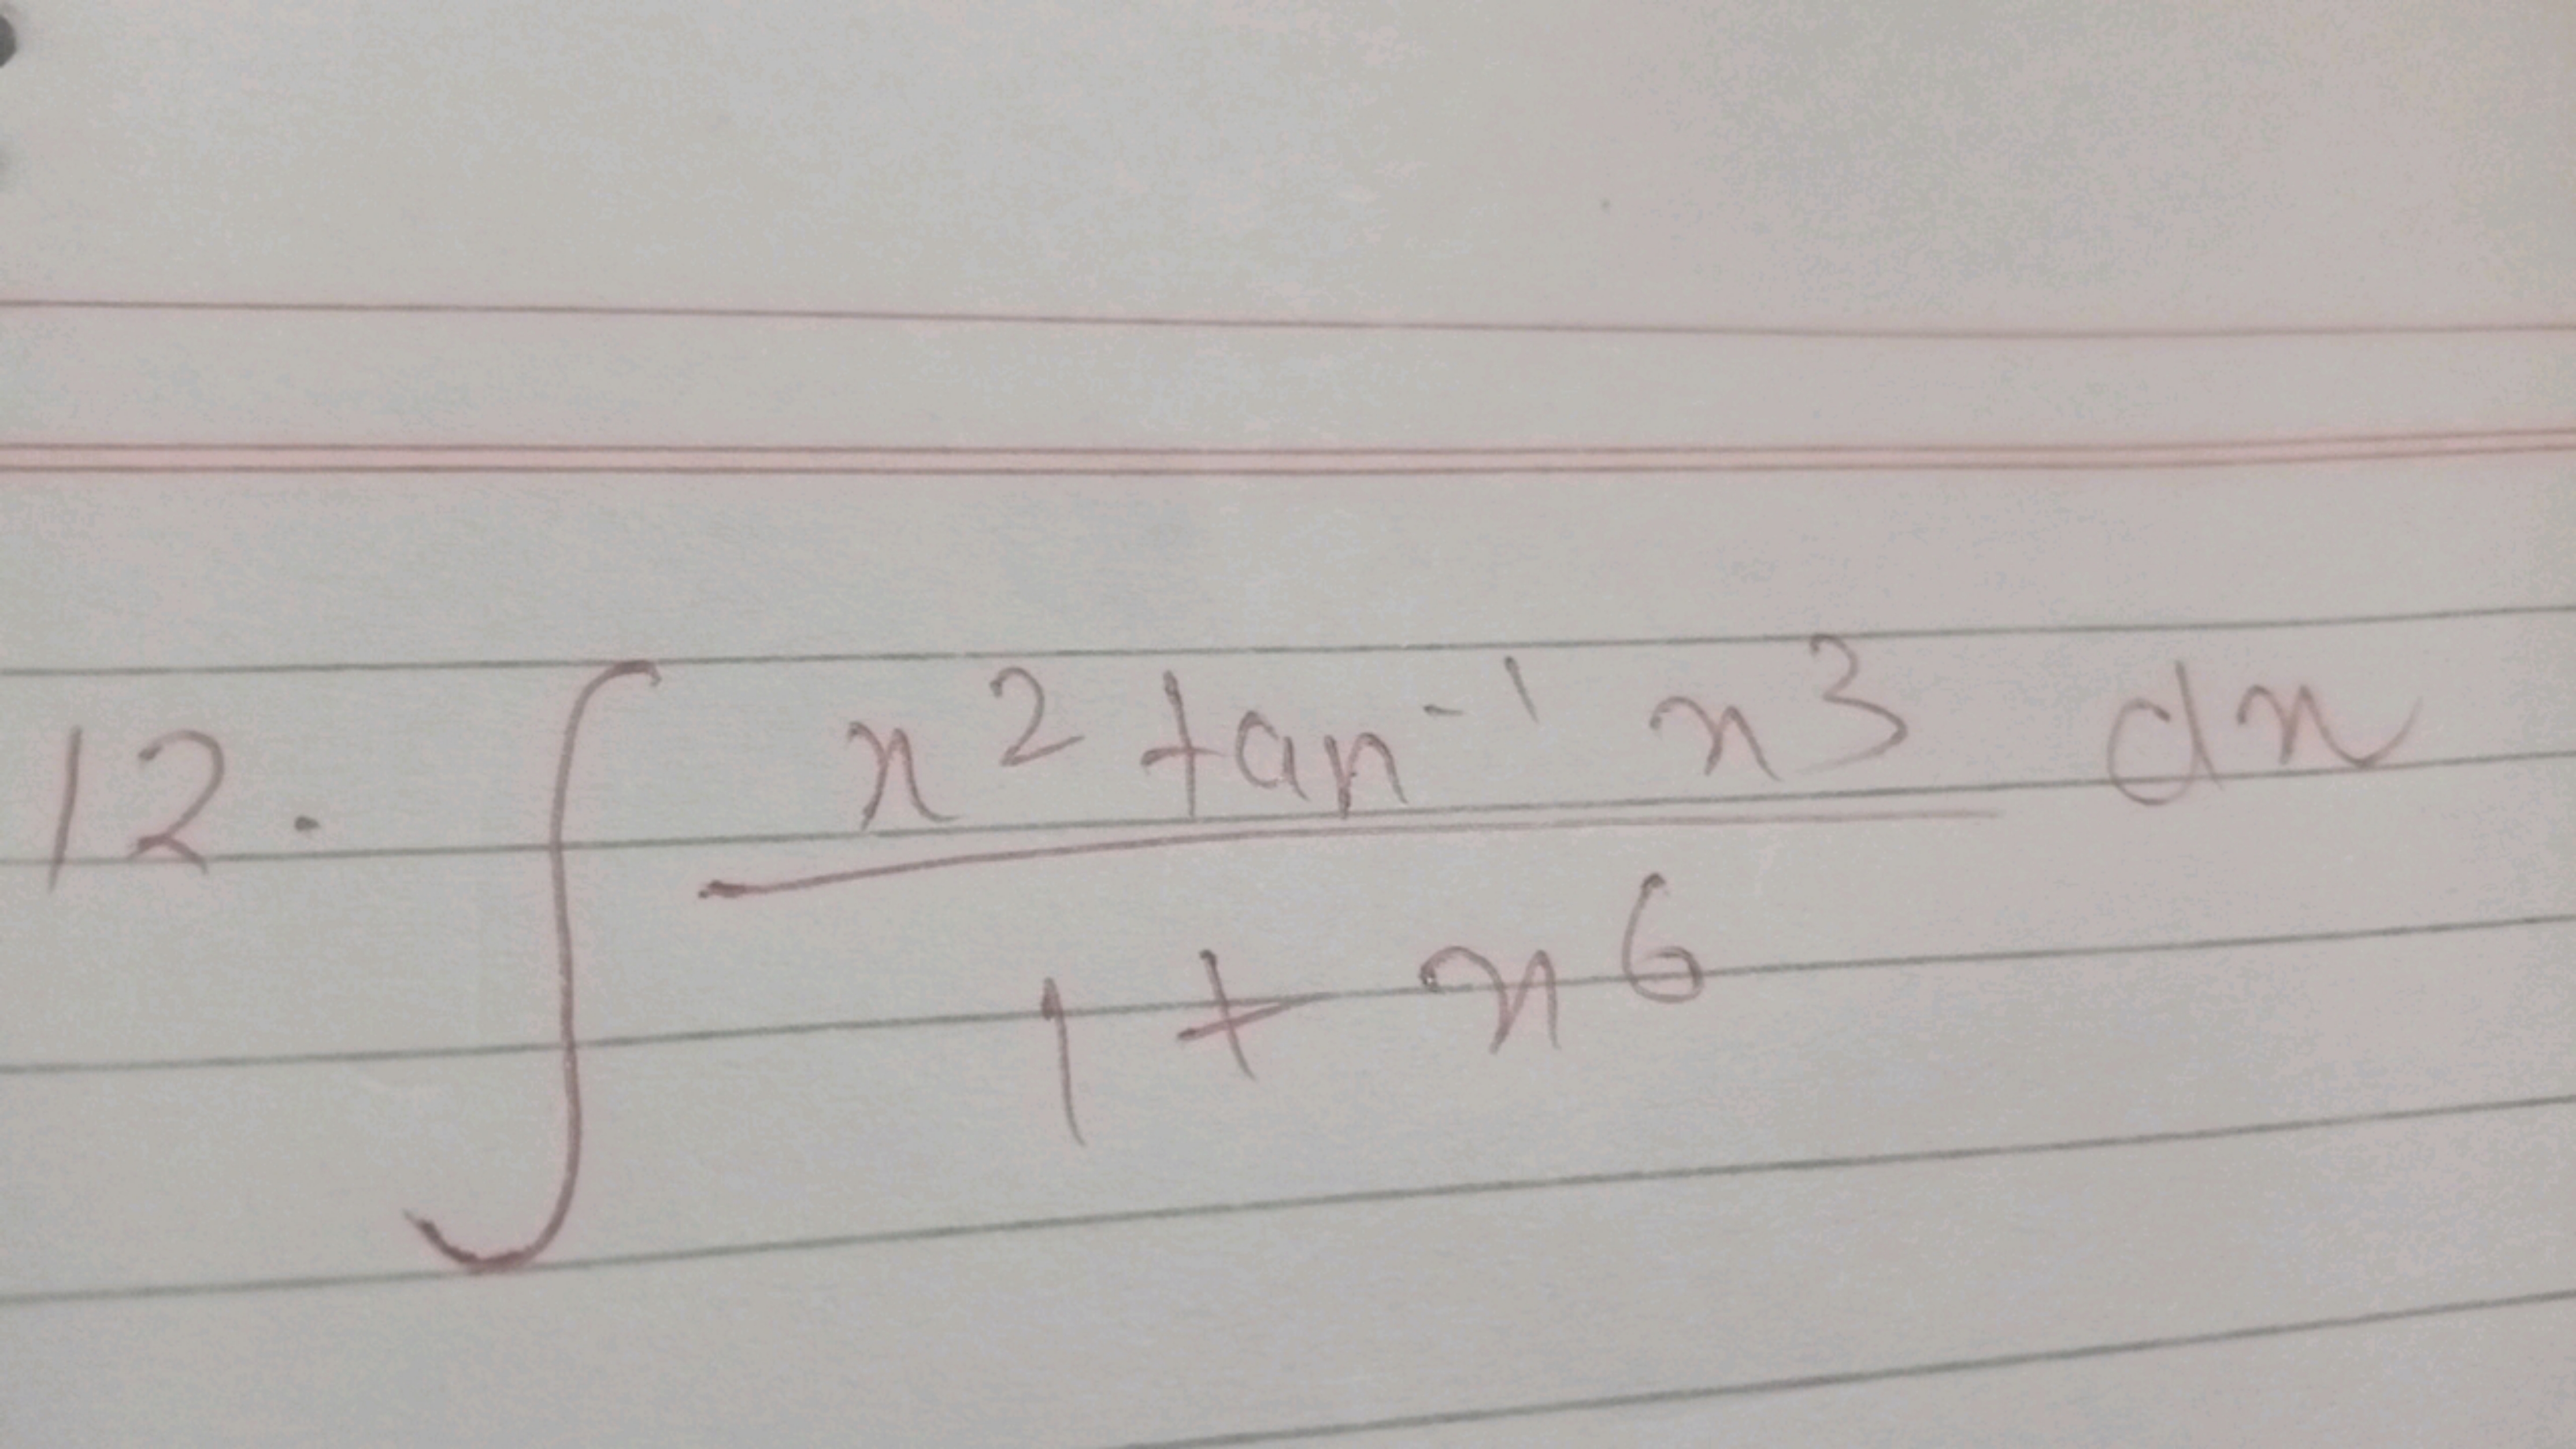 12. ∫ x² tan⁻¹ x³ / 1 + x⁶ dx